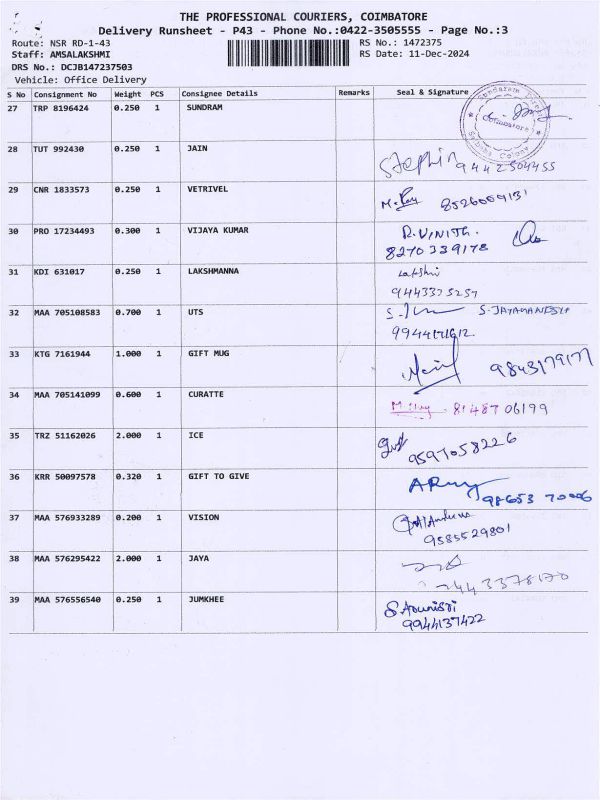 THE PROFESSIONAL COURIERS, COIMBATORE
Delivery Runsheet - P43 - Phone No.:0422-3505555 - Page No.:3
Route: NSR RD-1-43 RS No.: 1472375
Staff: AMSALAKSHMI RS Date: 11-Dec-2024
DRS No.: DCJB147237503
Vehicle: Office Delivery
S No Consignment No Weight PCS Consignee Details Remarks Seal & Signature
27 TRP 8196424 0.250 1 SUNDRAM
Coimbatore
28 TUT 992430 0.250 1 JAIN
Stephin 9442504455
29 CNR 1833573 0.250 1 VETRIVEL
8526009131
30 PRO 17234493 0.300 1 VIJAYA KUMAR
R.VINITH.
8270339178
31 KDI 631017 0.250 1 LAKSHMANNA
Lakshmi
9443375257
32 MAA 705108583 0.700 1 UTS
S. JAYAMANESH
9944171612
33 KTG 7161944 1.000 1 GIFT MUG
9843179177
34 MAA 705141099 0.600 1 CURATTE
81487 06199
35 TRZ 51162026 2.000 1 ICE
9597058226
36 KRR 50097578 0.320 1 GIFT TO GIVE
98653 70006
37 MAA 576933289 0.200 1 VISION
9585529801
38 MAA 576295422 2.000 1 JAYA
39 MAA 576556540 0.250 1 JUMKHEE
9944137422